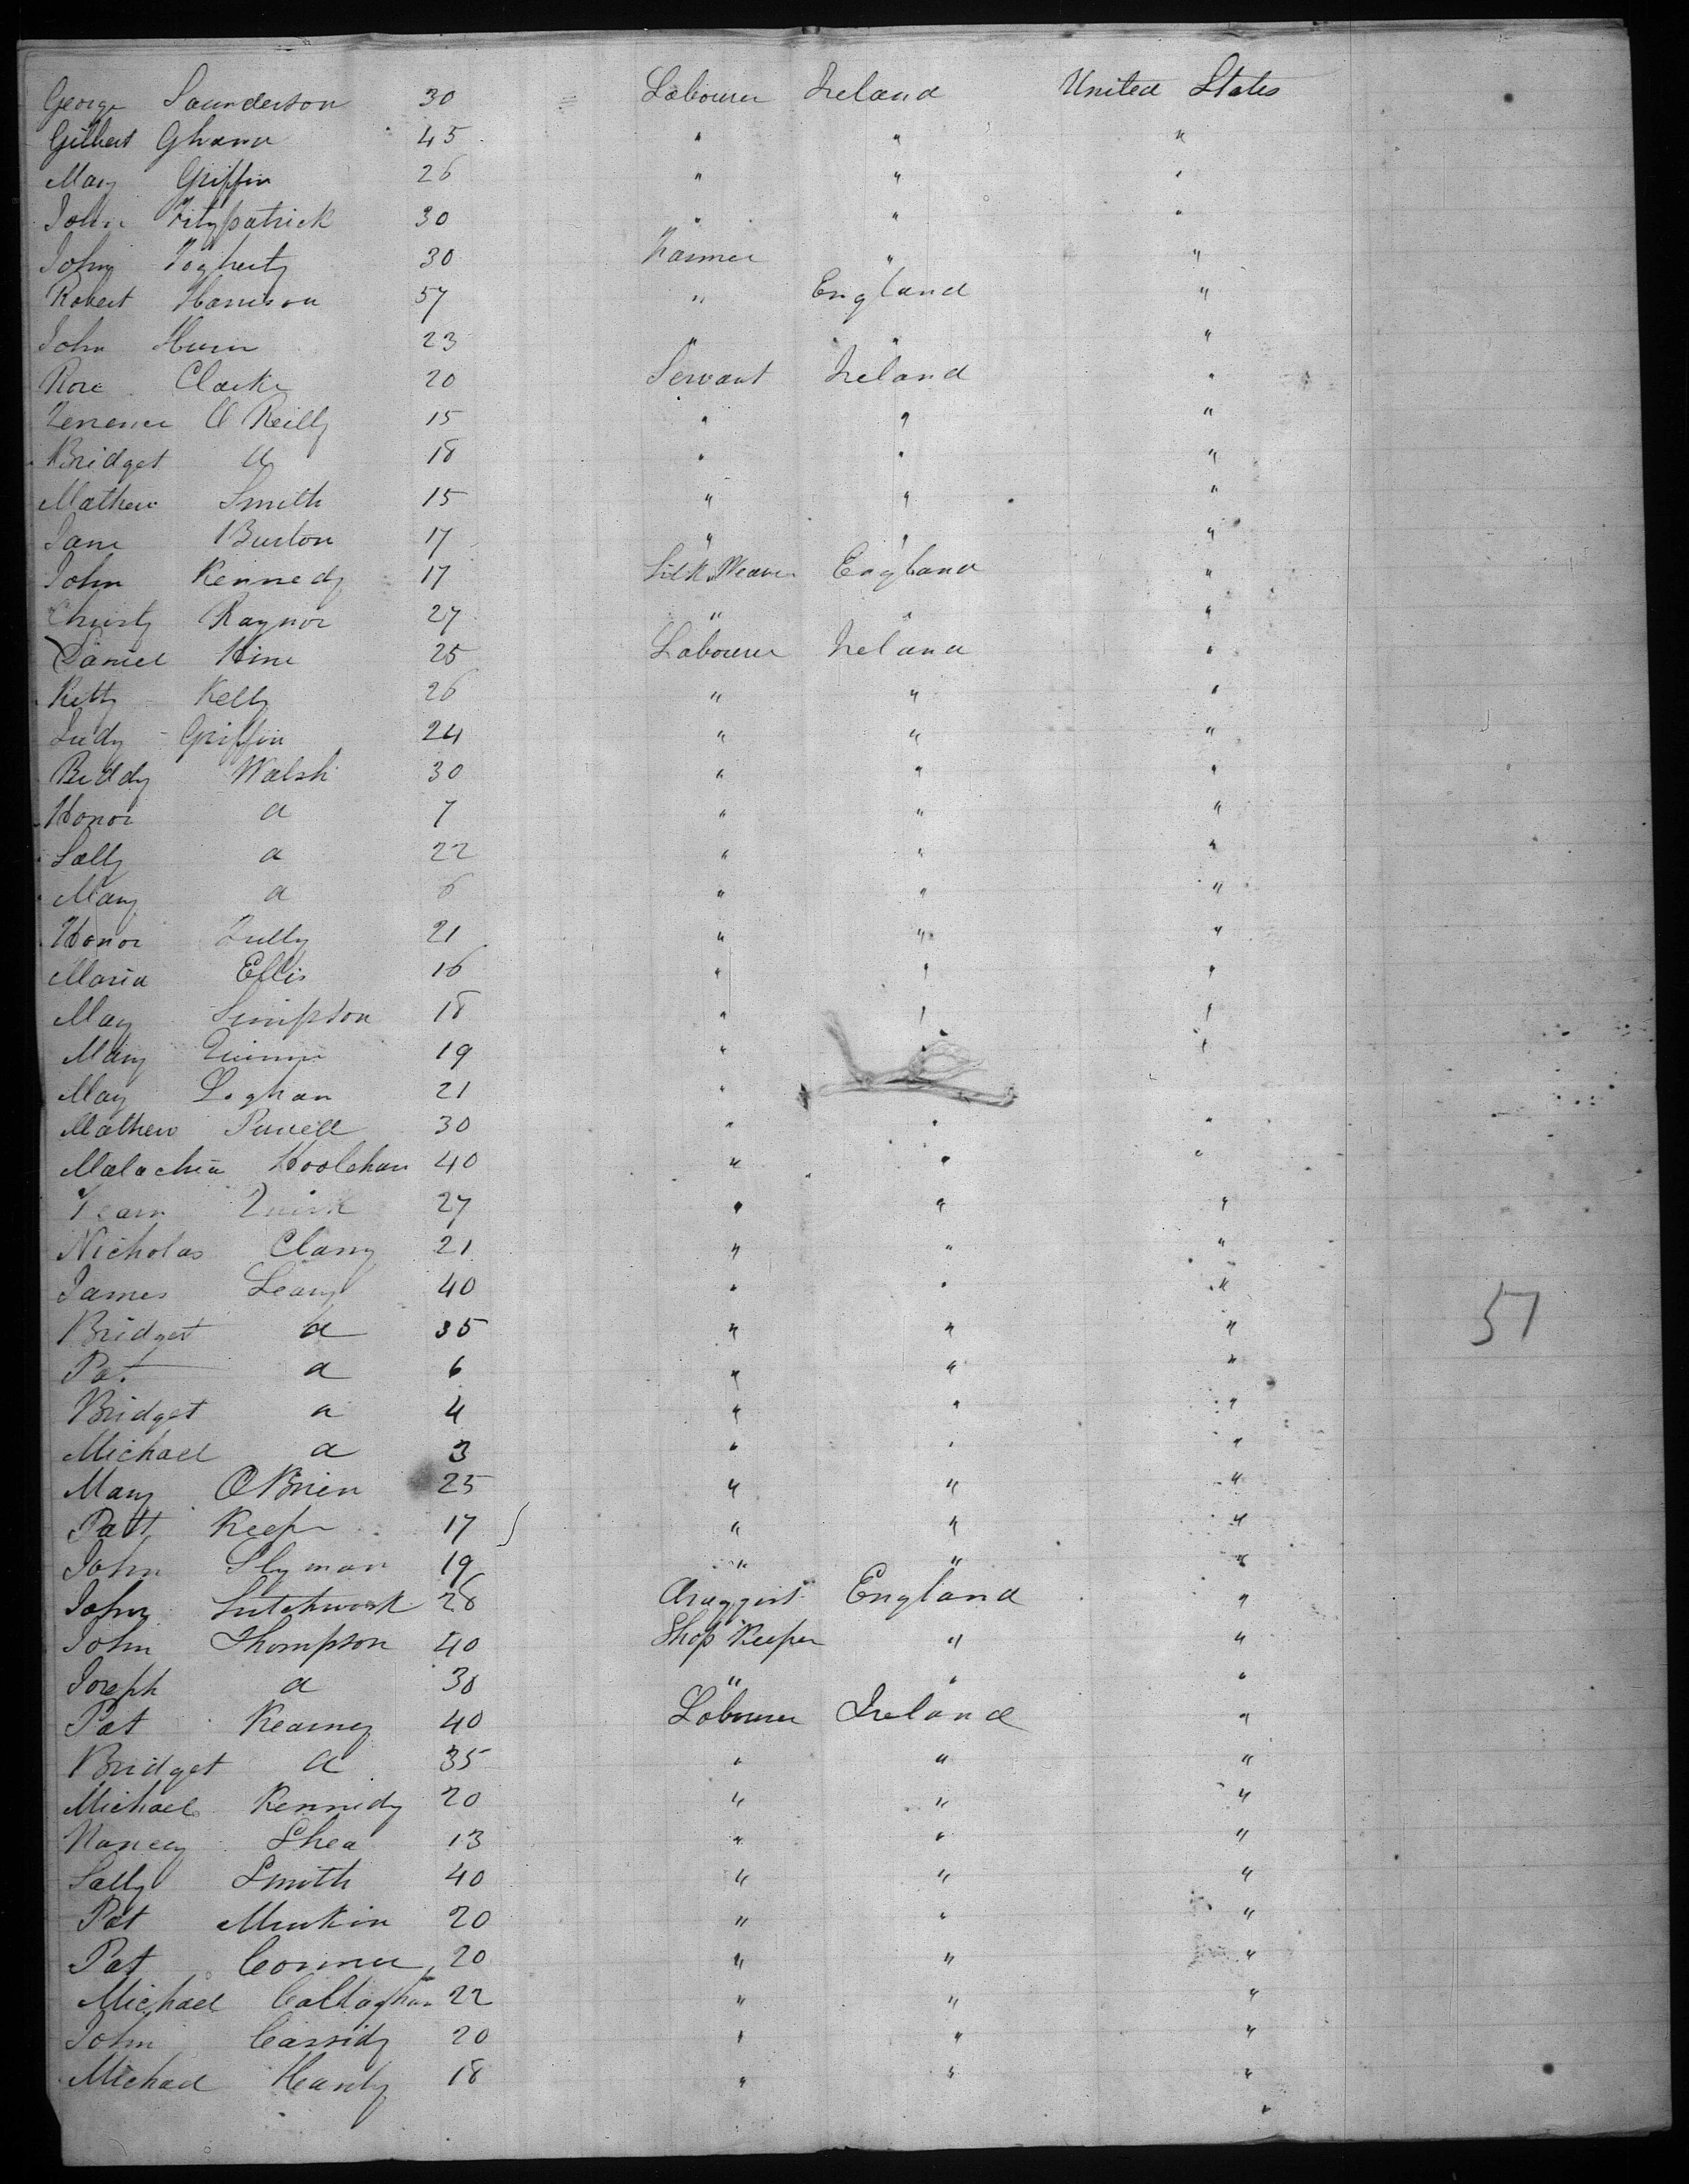 George Saunderson 30 Labourer Ireland United States
Gilbert Ghana 45 " " "
Mary Griffin 26 " " "
John Fitzpatrick 30 " " "
John Fogherty 30 Farmer " "
Robert Harrison 57 " England "
John 23 " " "
Rose Clarke 20 Servant Ireland "
Terrence O Reilly 15 " " "
Bridget a 18 " " "
Mathew Smith 15 " " "
Jane Burton 17 " " "
John Kennedy 17 Silk Weaver England "
Christy Raynor 27 " " "
Daniel Hine 25 Labourer Ireland "
Kitty Kelly 26 " " "
Judy Griffin 24 " " "
Biddy Walsh 30 " " "
Honor a 7 " " "
Sally a 22 " " "
Mary a 6 " " "
Honor Tully 21 " " "
Maria Ellis 16 " " "
May Simpson 18 " " "
Mary Quinn 19 " " "
May Loghan 21 "
Mathew Powell 30 " " "
Malachia Hoolehan 40 " " "
Quirk 27 " " "
Nicholas Clany 21 " " "
James Leary 40 " " "
Bridget a 35 " " " 51
Pat a 6 " " "
Bridget a 4 " " "
Michael a 3 " " "
Mary O'Brien 25 " " "
Patt Keefe 17 " " "
John Slyman 19 " " "
John 28 Druggist England "
John Thompson 40 Shop Keeper " "
Joseph a 30 " " "
Pat Kearney 40 Labourer Ireland "
Bridget a 35 " " "
Michael Kennedy 20 " " "
Nancy Shea 13 " " "
Sally Smith 40 " " "
Pat Murkin 20 " " "
Pat Connor 20 " " "
Michael Callaghan 22 " " "
John Cassidy 20 " " "
Michael Hardy 18 " " "